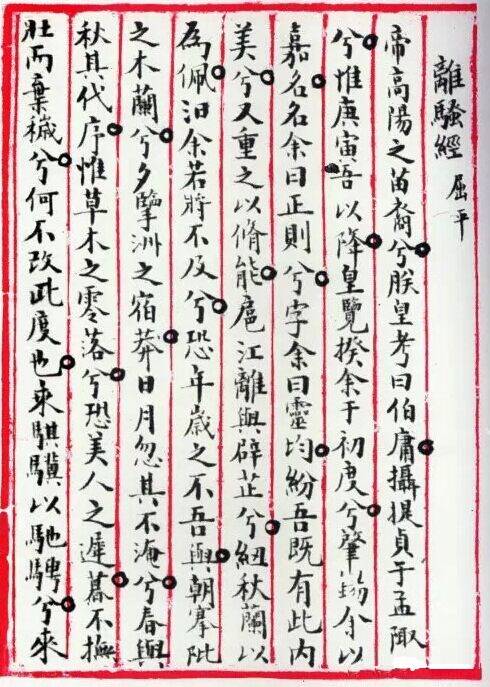 離騷經 屈平
帝高陽之苗裔兮朕皇考曰伯庸攝提貞于孟陬
兮惟庚寅吾以降皇覽揆余于初度兮肇錫余以
嘉名名余曰正則兮字余曰靈均紛吾既有此内
美兮又重之以脩能扈江離與辟芷兮紉秋蘭以
為佩汩余若將不及兮恐年歲之不吾與朝搴阰
之木蘭兮夕擥洲之宿莽日月忽其不淹兮春與
秋其代序惟草木之零落兮恐美人之遲暮不撫
壯而棄穢兮何不改此度也來騏驥以馳騁兮來